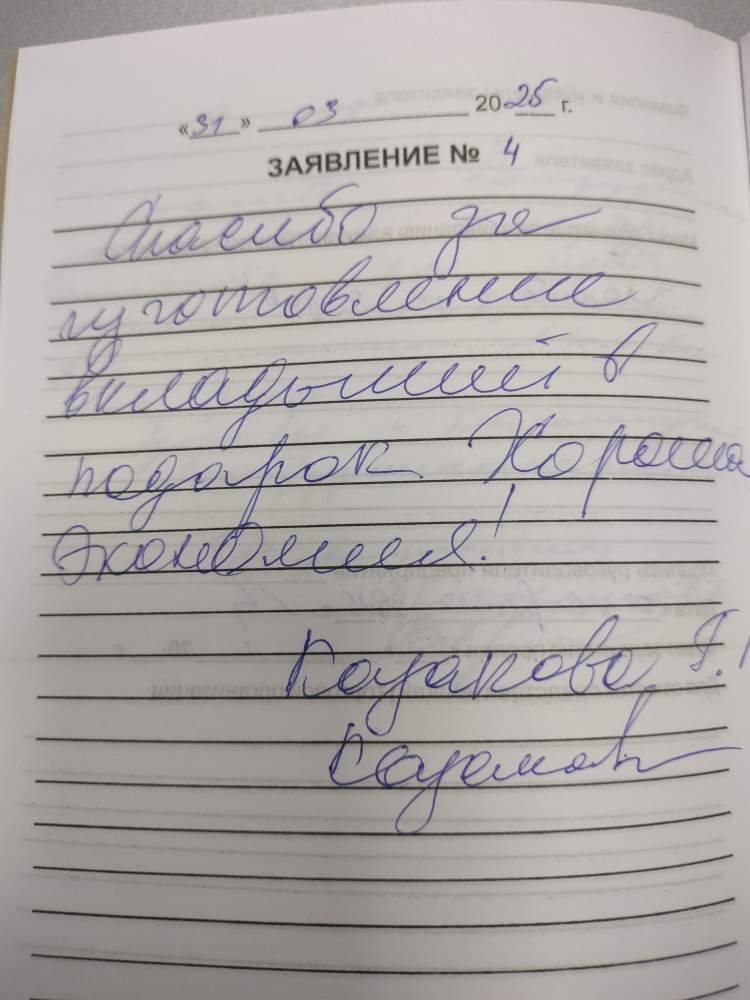 «31» 03 2025 г.
ЗАЯВЛЕНИЕ № 4
Спасибо за
изготовление
вкладышей в
подарок Хороша
экономия!
Казакова